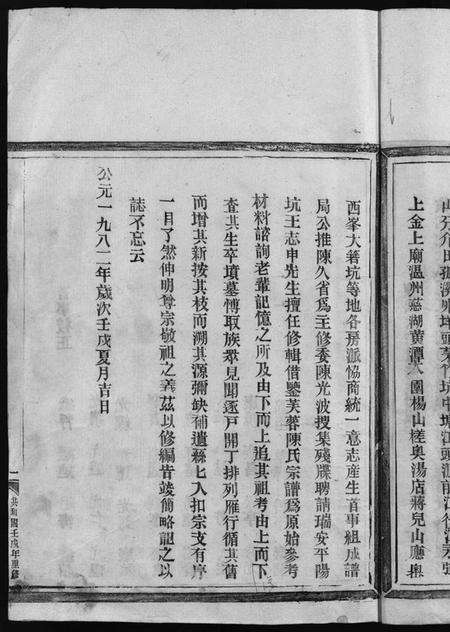 上金上廟溫州慈湖黄潭入圍楊山槎奥湯店蔣兒山廳
西峯大箬坑等地各房派協商統一意志産生首事組成譜
局公推陳久省爲主修委陳光波授集殘牒聘請瑞安平陽
坑王志申先生擅任修輯借鑒芙蓉陳氏宗譜爲原始參考
材料諮詢老輩記憶之所及由下而上追其祖考由上而下
查其生卒墳墓愽取族衆見聞逐戸開丁排列雁行循其舊
而增其新按其枝而溯其源彌缺補遺綦匕入扣宗支有序
一目了然伸明尊宗敬祖之義茲以修編告竣簡略記之以
誌不忘云
公元一九八二年歲次壬戍夏月吉日
一 共和國壬戍年重修